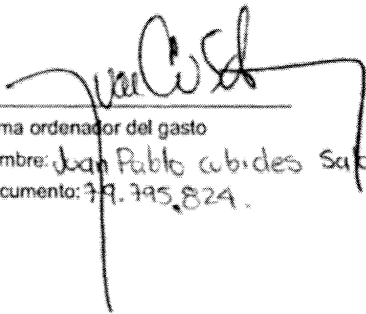 ma ordenador del gasto
mbre: Juan Pablo cubides Sal
cumento: 79.795.824.